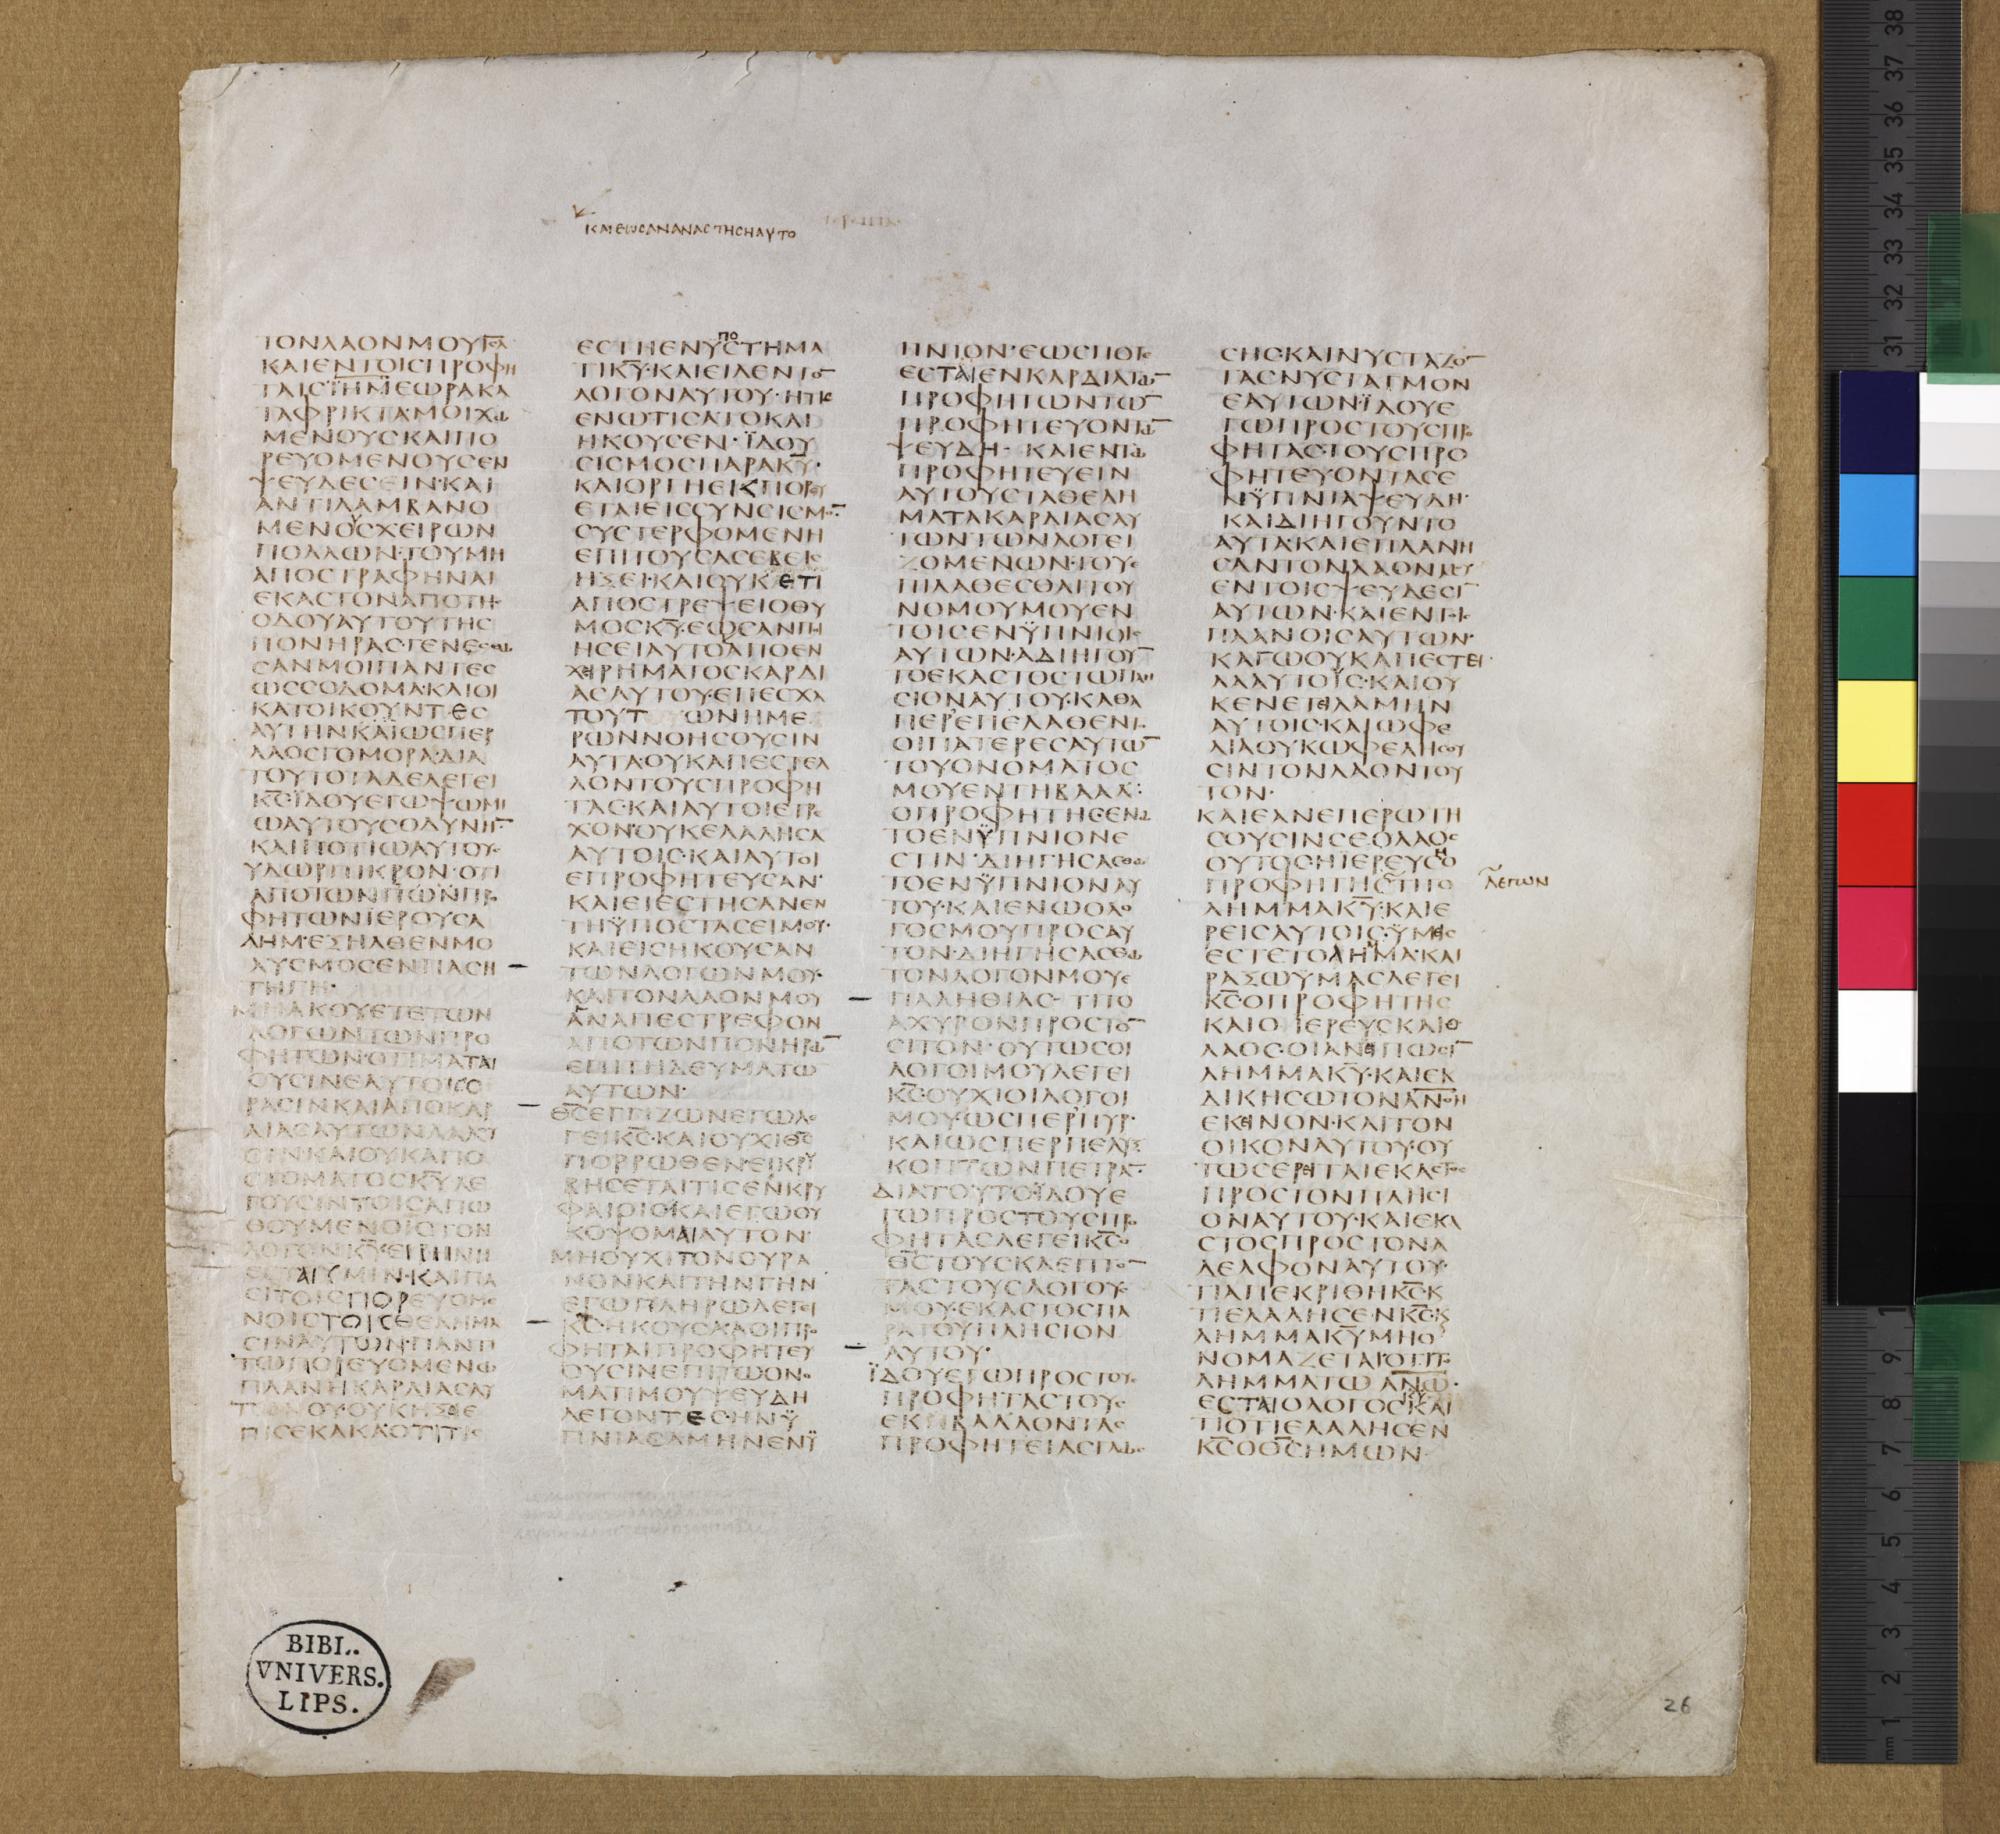 ΚΑΙΕΩCΑΝΑΝΑCΤΗCΗΑΥΤΟ
ΤΟΝΛΑΟΝΜΟΥΙ̅Η̅Λ̅
ΚΑΙΕΝΤΟΙCΠΡΟΦΗ
ΤΑΙCΪΗΜΕΩΡΑΚΑ
ΤΑΦΡΙΚΤΑΜΟΙΧΩ
ΜΕΝΟΥCΚΑΙΠΟ
ΡΕΥΟΜΕΝΟΥCΕΝ
ΨΕΥΔΕCΕΙΝ·ΚΑΙ
ΑΝΤΙΛΑΜΒΑΝΟ
ΜΕΝΟΥCΧΕΙΡΩΝ
ΠΟΛΛΩΝ·ΤΟΥΜΗ
ΑΠΟCΤΡΑΦΗΝΑΙ
ΕΚΑCΤΟΝΑΠΟΤΗC
ΟΔΟΥΑΥΤΟΥΤΗC
ΠΟΝΗΡΑC·ΓΕΝΕ
CΑΝΜΟΙΠΑΝΤΕC
ΩCCΟΔΟΜΑ·ΚΑΙΟΙ
ΚΑΤΟΙΚΟΥΝΤΕC
ΑΥΤΗΝΚΑΙΩCΠΕΡ
ΛΑΟCΓΟΜΟΡΑ·ΔΙΑ
ΤΟΥΤΟΤΑΔΕΛΕΓΕΙ
Κ̅C̅·ΪΔΟΥΕΓΩΨΩΜΙ
ΩΑΥΤΟΥCΟΔΥΝΗ̅
ΚΑΙΠΟΤΙΩΑΥΤΟΥC
ΥΔΩΡΠΙΚΡΟΝ·ΟΤΙ
ΑΠΟΤΩΝΠΩΝΠΡΟ
ΦΗΤΩΝΪΕΡΟΥCΑ
ΛΗΜ·ΕΞΗΛΘΕΝΜΟ
ΛΥCΜΟCΕΝΠΑCΗ
ΤΗΓΗ·
ΜΗΑΚΟΥΕΤΕΤΩΝ
ΛΟΓΩΝΤΩΝΠΡΟ
ΦΗΤΩΝ·ΟΤΙΜΑΤΑΙ
ΟΥCΙΝΕΑΥΤΟΙCΟ
ΡΑCΙΝΚΑΙΑΠΟΚΑΡ
ΔΙΑCΑΥΤΩΝΛΑΛΟΥ
CΙΝ·ΚΑΙΟΥΚΑΠΟ
CΤΟΜΑΤΟCΚ̅Υ̅·ΛΕ
ΓΟΥCΙΝΤΟΙCΑΠΩ
ΘΟΥΜΕΝΟΙCΤΟΝ
ΛΟΓΟΝΚ̅Υ̅·ΕΙΡΗΝΗ
ΕCΤΑΙΥΜΙΝ·ΚΑΙΠΑ
CΙΤΟΙCΠΟΡΕΥΟΜΕ
ΝΟΙCΤΟΙCΘΕΛΗΜΑ
CΙΝΑΥΤΩΝ·ΠΑΝΤΙ
ΤΩΠΟΡΕΥΟΜΕΝΩ
ΠΛΑΝΗΚΑΡΔΙΑCΑΥ
ΤΟΥΟΥΚΗΞΕΙΕ
ΠΙCΕΚΑΚΑ·ΟΤΙΤΙC
ΕCΤΗΕΝΥΠΟCΤΗΜΑ
ΤΙΚ̅Υ̅·ΚΑΙΕΙΔΕΝΤΟ̅
ΛΟΓΟΝΑΥΤΟΥ·ΗΤΙC
ΕΝΩΤΙCΑΤΟΚΑΙ
ΗΚΟΥCΕΝ·ΪΔΟΥ
CΙCΜΟCΠΑΡΑΚ̅Υ̅·
ΚΑΙΟΡΓΗΕΚΠΟΡΕΥ
ΕΤΑΙΕΙCCΥΝCΙCΜΟ̅·
CΥCΤΕΡΦΟΜΕΝΗ
ΕΠΙΤΟΥCΑCΕΒΕΙC
ΗΞΕΙ·ΚΑΙΟΥΚΕΤΙ
ΑΠΟCΤΡΕΨΕΙΟΘΥ
ΜΟCΚ̅Υ̅·ΕΩCΑΝΠΗ
ΗCΕΙΑΥΤΟΑΠΟΕΝ
ΧΙΡΗΜΑΤΟCΚΑΡΔΙ
ΑCΑΥΤΟΥ·ΕΠΕCΧΑ
ΤΟΥΤ ΩΝΗΜΕ
ΡΩΝΝΟΗCΟΥCΙΝ
ΑΥΤΑ·ΟΥΚΑΠΕCΤΕΛ
ΛΟΝΤΟΥCΠΡΟΦΗ
ΤΑC·ΚΑΙΑΥΤΟΙΕΤΡΕ
ΧΟΝ·ΟΥΚΕΛΑΛΗCΑ
ΑΥΤΟΙC·ΚΑΙΑΥΤΟΙ
ΕΠΡΟΦΗΤΕΥCΑΝ·
ΚΑΙΕΙΕCΤΗCΑΝΕΝ
ΤΗΫΠΟCΤΑCΕΙΜΟΥ·
ΚΑΙΕΙCΗΚΟΥCΑΝ
ΤΩΝΛΟΓΩΝΜΟΥ·
ΚΑΙΤΟΝΛΑΟΝΜΟΥ
ΑΝΑΠΕCΤΡΕΦΟΝ
ΑΠΟΤΩΝΠΟΝΗΡΩ̅
ΕΠΙΤΗΔΕΥΜΑΤΩ̅
ΑΥΤΩΝ·
Θ̅C̅ΕΓΓΙΖΩΝΕΓΩΛΕ
ΓΕΙΚ̅C̅·ΚΑΙΟΥΧΙΘ̅C̅
ΠΟΡΡΩΘΕΝ·ΕΙΚΡΥ
ΒΗCΕΤΑΙΤΙCΕΝΚΡΥ
ΦΑΙΟΙC·ΚΑΙΕΓΩΟΥ
ΚΟΨΟΜΑΙΑΥΤΟΝ·
ΜΗΟΥΧΙΤΟΝΟΥΡΑ
ΝΟΝΚΑΙΤΗΝΓΗΝ
ΕΓΩΠΛΗΡΩΛΕΓΕΙ
Κ̅C̅·ΗΚΟΥCΑΑΟΙΠΡΟ
ΦΗΤΑΙΠΡΟΦΗΤΕΥ
ΟΥCΙΝΕΠΙΤΩΟΝΟ
ΜΑΤΙΜΟΥΨΕΥΔΗ
ΛΕΓΟΝΤΕC·ΗΝΫ
ΠΝΙΑCΑΜΗΝΕΝΫ
ΠΝΙΟΝ·ΕΩCΠΟΤΕ
ΕCΤΑΙΕΝΚΑΡΔΙΑΤΩ̅
ΠΡΟΦΗΤΩΝΤΩ̅
ΠΡΟΦΗΤΕΥΟΝΤΩ̅
ΨΕΥΔΗ·ΚΑΙΕΝΤΩ
ΠΡΟΦΗΤΕΥΕΙΝ
ΑΥΤΟΥCΤΑΘΕΛΗ
ΜΑΤΑΚΑΡΔΙΑCΑΥ
ΤΩΝΤΩΝΛΟΓΕΙ
ΖΟΜΕΝΩΝ·ΤΟΥΕ
ΠΙΛΑΘΕCΘΑΙΤΟΥ
ΝΟΜΟΥΜΟΥΕΝ
ΤΟΙCΕΝΫΠΝΙΟΙC
ΑΥΤΩΝ·ΑΔΙΗΓΟΥ̅
ΤΟΕΚΑCΤΟCΤΩΠΛΗ
CΙΟΝΑΥΤΟΥ·ΚΑΘΑ
ΠΕΡΕΠΕΛΑΘΕΝΤΟ
ΟΙΠΑΤΕΡΕCΑΥΤΩ̅
ΤΟΥΟΝΟΜΑΤΟC
ΜΟΥΕΝΤΗΒΑΑΛ:
ΟΠΡΟΦΗΤΗCΕΝΩ
ΤΟΕΝΫΠΝΙΟΝΕ
CΤΙΝ·ΔΙΗΓΗCΑCΘΩ
ΤΟΕΝΫΠΝΙΟΝΑΥ
ΤΟΥ·ΚΑΙΕΝΩΟΛΟ
ΓΟCΜΟΥΠΡΟCΑΥ
ΤΟΝ·ΔΙΗΓΗCΑCΘΩ
ΤΟΝΛΟΓΟΝΜΟΥΕ
ΠΑΛΗΘΙΑC·ΤΙΤΟ
ΑΧΥΡΟΝΠΡΟCΤΟ̅
CΙΤΟΝ·ΟΥΤΩCΟΙ
ΛΟΓΟΙΜΟΥΛΕΓΕΙ
Κ̅C̅·ΟΥΧΙΟΙΛΟΓΟΙ
ΜΟΥ·ΩCΠΕΡΠΥΡ·
ΚΑΙΩCΠΕΡΠΕΛΥΞ
ΚΟΠΤΩΝΠΕΤΡΑ̅·
ΔΙΑΤΟΥΤΟΪΔΟΥΕ
ΓΩΠΡΟCΤΟΥCΠΡΟ
ΦΗΤΑCΛΕΓΕΙΚ̅C̅Ο
Θ̅C̅ΤΟΥCΚΛΕΠΤΟ̅
ΤΑCΤΟΥCΛΟΓΟΥC
ΜΟΥ·ΕΚΑCΤΟCΠΑ
ΡΑΤΟΥΠΛΗCΙΟΝ
ΑΥΤΟΥ·
ΪΔΟΥΕΓΩΠΡΟCΤΟΥC
ΠΡΟΦΗΤΑCΤΟΥC
ΕΚΒΑΛΛΟΝΤΑC
ΠΡΟΦΗΤΕΙΑCΓΛΩC
CΗC·ΚΑΙΝΥCΤΑΖΟ̅
ΤΑCΝΥCΤΑΓΜΟΝ
ΕΑΥΤΩΝ·ΪΔΟΥΕ
ΓΩΠΡΟCΤΟΥCΠΡΟ
ΦΗΤΑC·ΤΟΥCΠΡΟ
ΦΗΤΕΥΟΝΤΑCΕ
ΝΫΠΝΙΑΨΕΥΔΗ·
ΚΑΙΔΙΗΓΟΥΝΤΟ
ΑΥΤΑ·ΚΑΙΕΠΛΑΝΗ
CΑΝΤΟΝΛΑΟΝΜΟΥ
ΕΝΤΟΙCΨΕΥΔΕCΙ̅
ΑΥΤΩΝ·ΚΑΙΕΝΤΟΙC
ΠΛΑΝΟΙCΑΥΤΩΝ·
ΚΑΓΩΟΥΚΑΠΕCΤΕΙ
ΛΑΑΥΤΟΥC·ΚΑΙΟΥ
ΚΕΝΕΤΙΛΑΜΗΝ
ΑΥΤΟΙC·ΚΑΙΩΦΕ
ΛΙΑΟΥΚΩΦΕΛΗCΟΥ
CΙΝΤΟΝΛΑΟΝΤΟΥ
ΤΟΝ·
ΚΑΙΕΑΝΕΠΕΡΩΤΗ
CΟΥCΙΝCΕ·ΟΛΑΟC
ΟΥΤΟCΗΪΕΡΕΥCΗΟ
ΠΡΟΦΗΤΗC·ΤΙΤΟ
ΛΕΓΩΝ
ΛΗΜΜΑΚ̅Υ̅·ΚΑΙΕ
ΡΕΙCΑΥΤΟΙC·ΫΜΕΙC
ΕCΤΕΤΟΛΗΜΜΑ·ΚΑΙ
ΡΑΞΩΫΜΑCΛΕΓΕΙ
Κ̅C̅·ΟΠΡΟΦΗΤΗC
ΚΑΙΟΪΕΡΕΥCΚΑΙΟ
ΛΑΟC·ΟΙΑΝΕΙΠΩCΙ̅
ΛΗΜΜΑΚ̅Υ̅·ΚΑΙΕΚ
ΔΙΚΗCΩΤΟΝΑ̅Ν̅Ο̅Ν̅
ΕΚΙΝΟΝ·ΚΑΙΤΟΝ
ΟΙΚΟΝΑΥΤΟΥ·ΟΥ
ΤΩCΕΡΕΙΤΑΙΕΚΑCΤΟC
ΠΡΟCΤΟΝΠΛΗCΙ
ΟΝΑΥΤΟΥ·ΚΑΙΕΚΑ
CΤΟCΠΡΟCΤΟΝΑ
ΔΕΛΦΟΝΑΥΤΟΥ·
ΤΙΑΠΕΚΡΙΘΗΚ̅C̅·Κ
ΤΙΕΛΑΛΗCΕΝΚ̅C̅·Κ
ΛΗΜΜΑΚ̅Υ̅ΜΗΟ
ΝΟΜΑΖΕΤΑΙ·ΟΤΙΤΟ
ΛΗΜΜΑΤΩΑ̅Ν̅Ω̅·
ΕCΤΑΙΟΛΟΓΟC·ΚΑΙ
ΤΙΟΤΙΕΛΑΛΗCΕΝ
Κ̅C̅ΟΘ̅C̅ΗΜΩΝ·
BIBL.
VNIVERS.
LIPS.
26